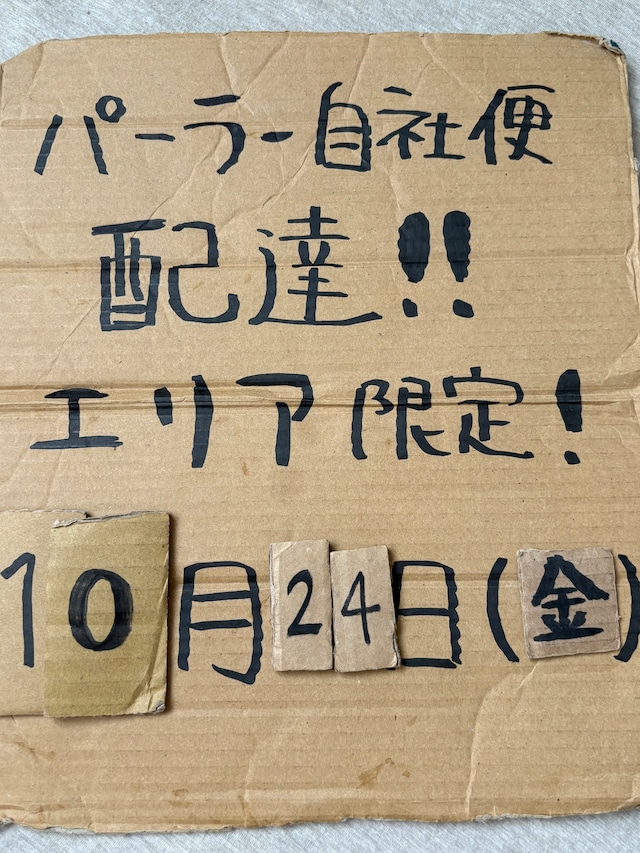 パーラー自社便
配達!!
エリア限定!
10月24日(金)